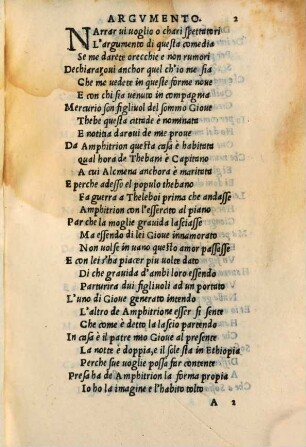 ARGVMENTO. 2
NArrar ui uoglio o chari spettatori
L'argumento di questa comedia
Se me darete orecchie e non rumori
Dechiaraoui anchor quel ch'io me sia
Che me uedete in queste forme noue
E con chi sia uenuto in compagnia
Mercurio son figliuol del sommo Gioue
Thebe questa cittade è nominata
E notitia daroui de mie proue
Da Amphitrion questa casa è habitata
qual hora de Thebani è Capitano
A cui Alcmena anchora è maritata
E perche adesso el populo thebano
Fa guerra a Theleboi prima che andasse
Amphitrion con l'essercito al piano
Par che la moglie grauida lasciasse
Ma essendo di lei Gioue innamorato
Non uolse in uano questo amor passasse
E con lei s'ha piacer piu uolte dato
Di che grauida d'ambi loro essendo
Parturira dui figliuoli ad un portato
L'uno di Gioue generato intendo
L'altro de Amphitrione esser si sente
Che come è detto la lascio partendo
In casa è il patre mio Gioue al presente
La notte è doppia, e il sole sta in Ethiopia
Perche sue uoglie possa far contente
Presa ha de Amphitrion la forma propia
Io ho la imagine e l'habito tolto
A 2